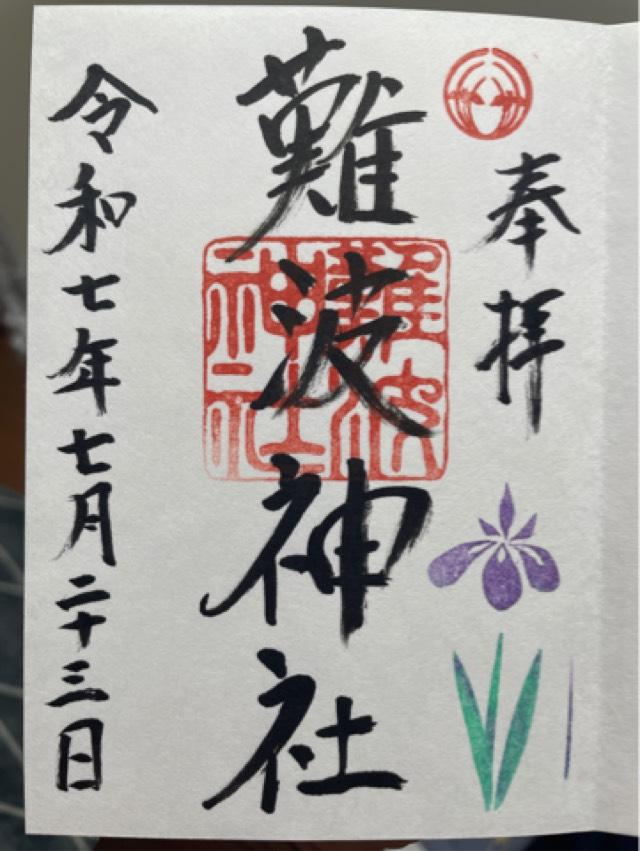 奉拝
難波神社
難波神社
令和七年七月二十三日